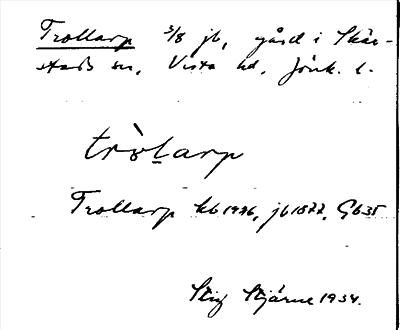 Trollarp 3/8 jb, gård i Skär-
stads sn, Vista hd, Jönk. l.
tròḻarp
Trollarp kb 1946, jb 1877, Gb 35
Stig Stjärne 1934.